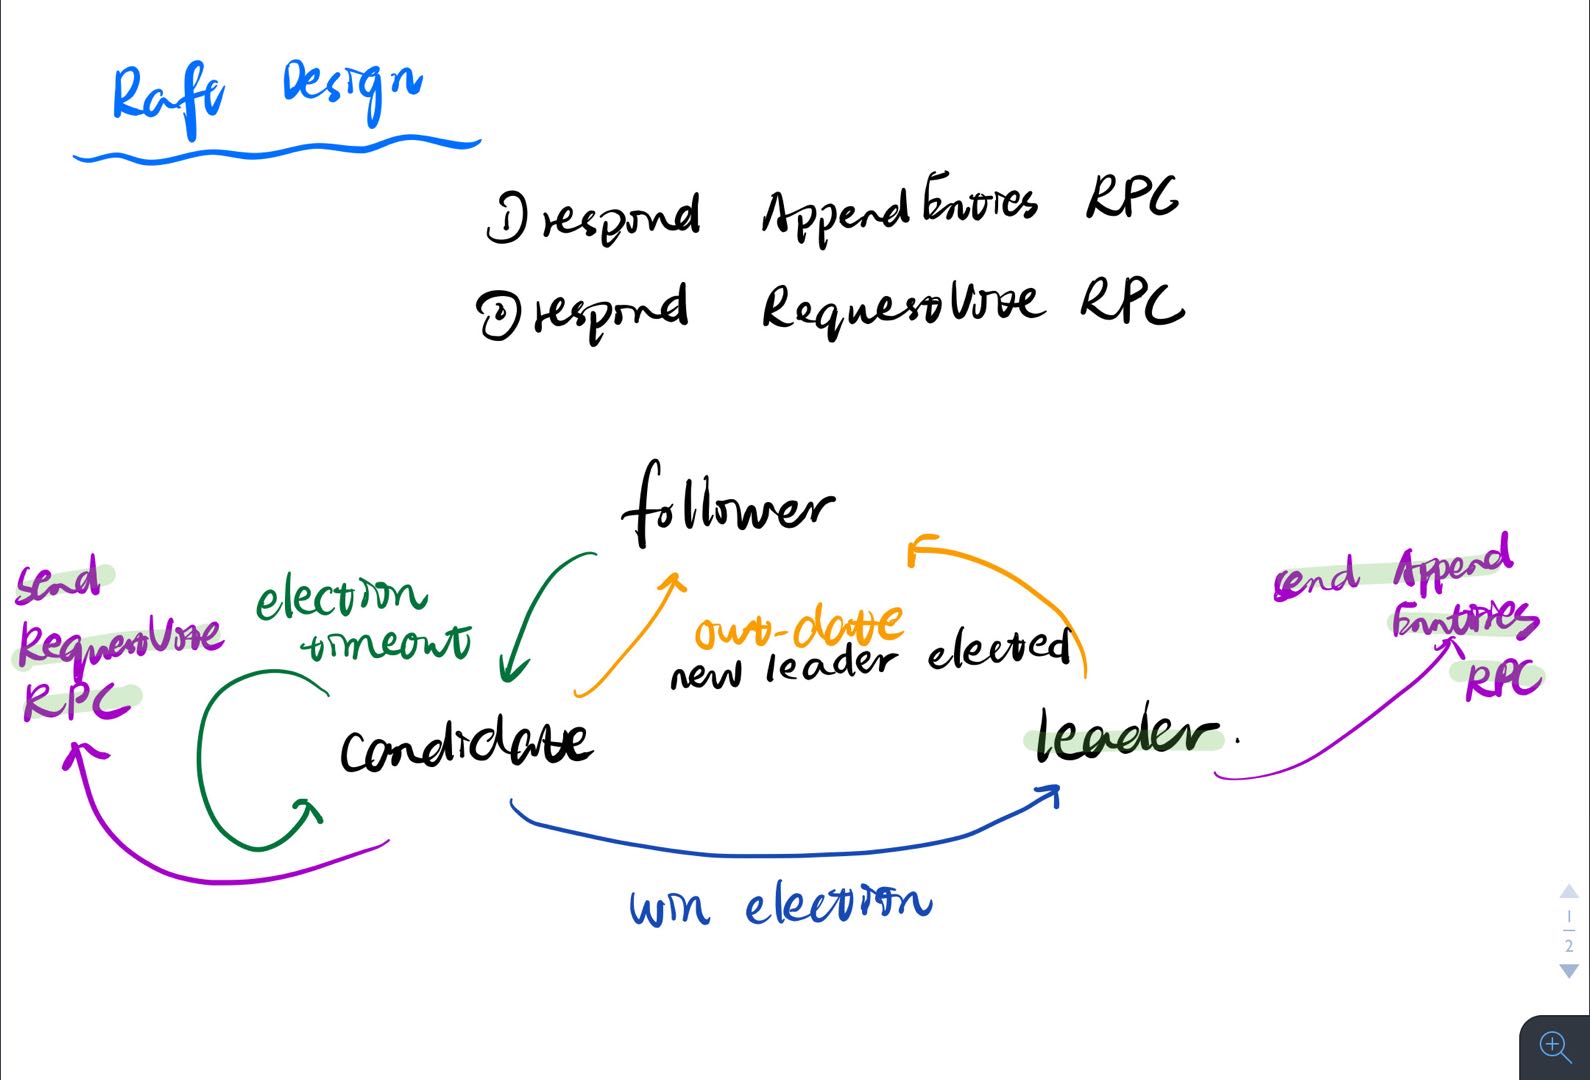 Raft Design
① respond AppendEntries RPC
② respond RequestVote RPC
follower
send
RequestVote
RPC
election
timeout
out-date
new leader elected
send Append
Entries
RPC
candidate
leader.
win election
1
2